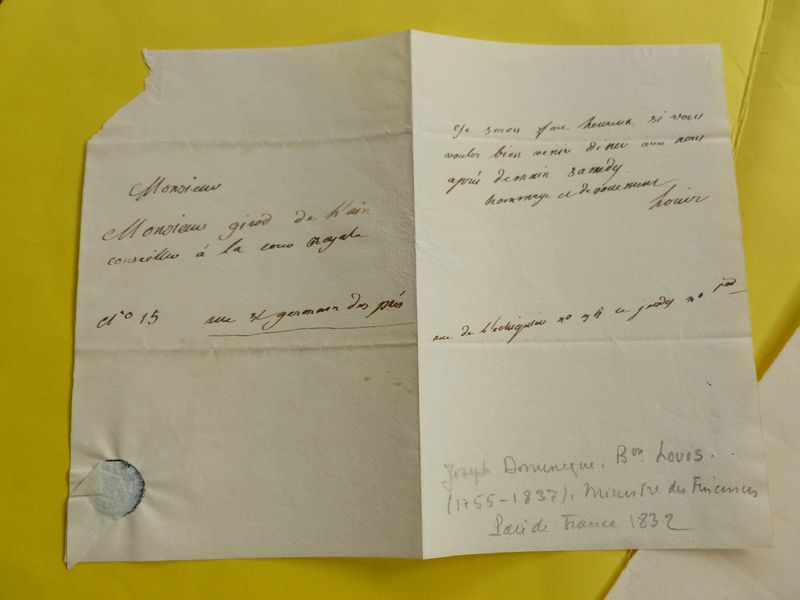 Monsieur
Monsieur girod de l'ain
conseiller à la cour royale
N° 15 rue st germain des prés
Je serois fort heureux si vous
vouler bien venir diner avec nous
après demain samedy
hommage et devouement
Louis
rue de l'echiquier n° ce jeudy
Joseph Dominique, Bon Louis.
(1755-1837), Ministre des Finances
Pair de France 1832